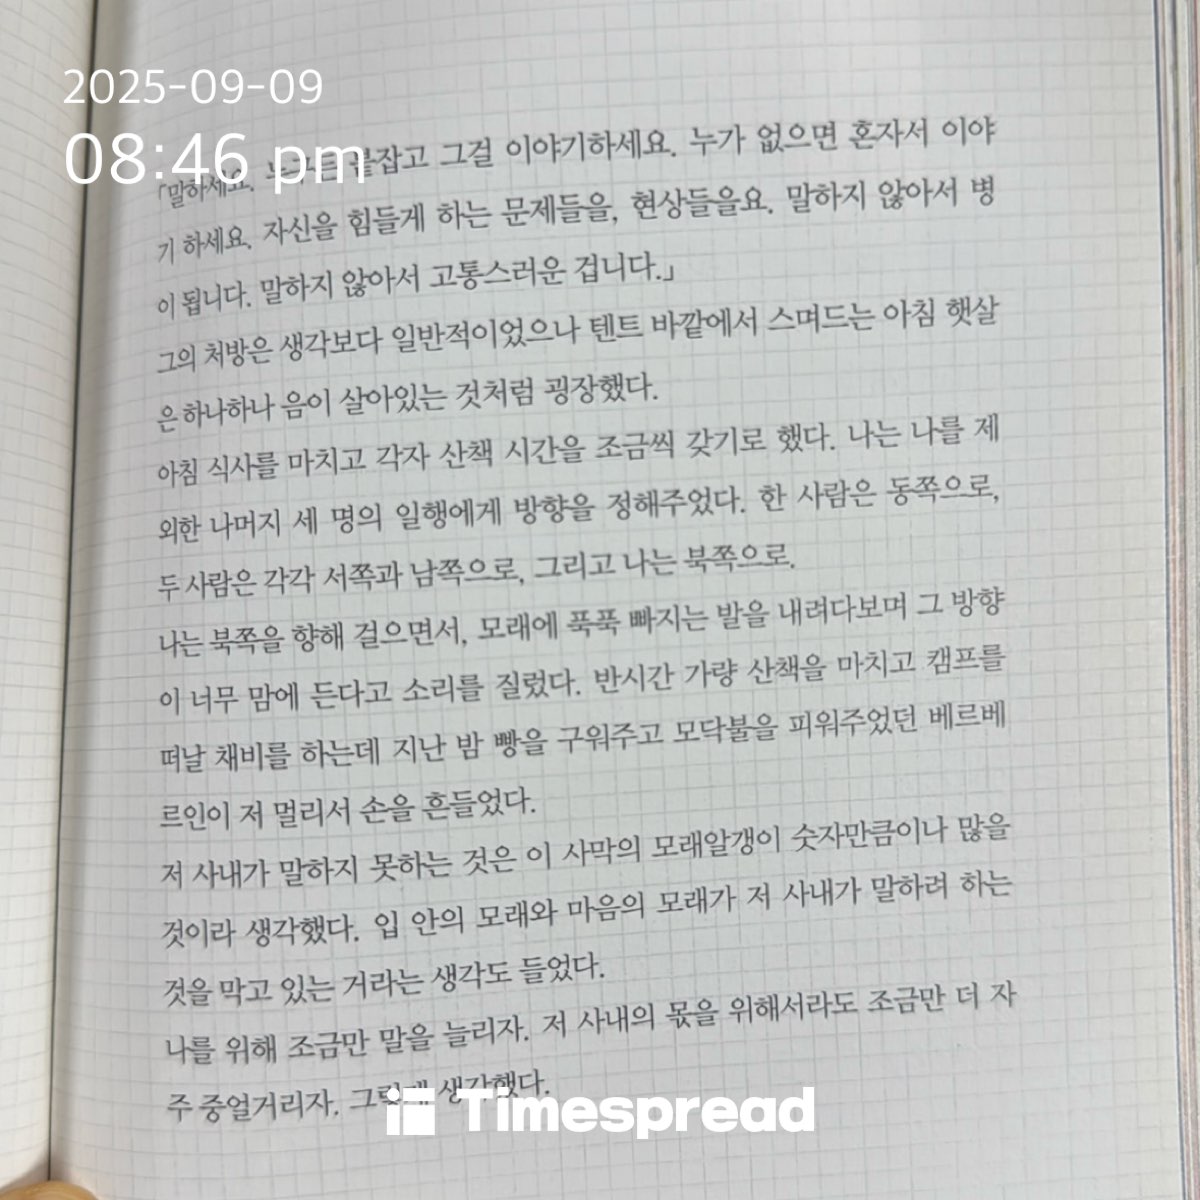 2025-09-09
08:46 pm
「말하세요. 누구든 붙잡고 그걸 이야기하세요. 누가 없으면 혼자서 이야
기 하세요. 자신을 힘들게 하는 문제들을, 현상들을요. 말하지 않아서 병
이 됩니다. 말하지 않아서 고통스러운 겁니다.」
그의 처방은 생각보다 일반적이었으나 텐트 바깥에서 스며드는 아침 햇살
은 하나하나 음이 살아있는 것처럼 굉장했다.
아침 식사를 마치고 각자 산책 시간을 조금씩 갖기로 했다. 나는 나를 제
외한 나머지 세 명의 일행에게 방향을 정해주었다. 한 사람은 동쪽으로,
두 사람은 각각 서쪽과 남쪽으로, 그리고 나는 북쪽으로.
나는 북쪽을 향해 걸으면서, 모래에 푹푹 빠지는 발을 내려다보며 그 방향
이 너무 맘에 든다고 소리를 질렀다. 반시간 가량 산책을 마치고 캠프를
떠날 채비를 하는데 지난 밤 빵을 구워주고 모닥불을 피워주었던 베르베
르인이 저 멀리서 손을 흔들었다.
저 사내가 말하지 못하는 것은 이 사막의 모래알갱이 숫자만큼이나 많을
것이라 생각했다. 입 안의 모래와 마음의 모래가 저 사내가 말하려 하는
것을 막고 있는 거라는 생각도 들었다.
나를 위해 조금만 말을 늘리자. 저 사내의 몫을 위해서라도 조금만 더 자
주 중얼거리자. 그렇게 생각했다.
Timespread